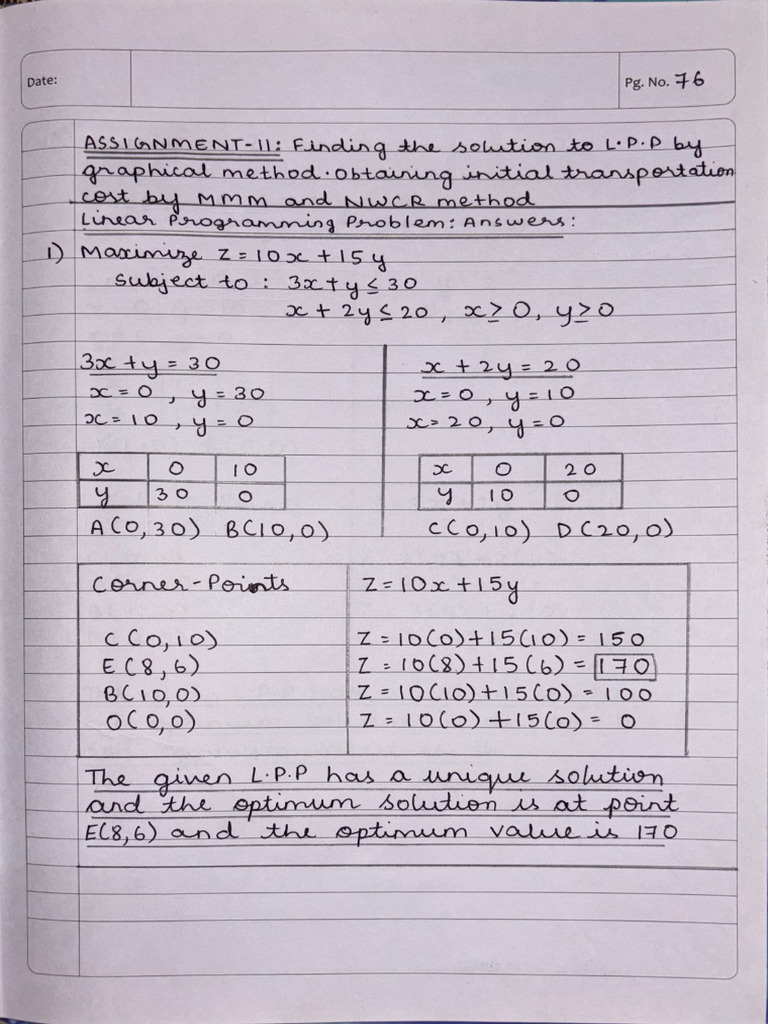 Date:
Pg. No. 76
ASSIGNMENT-11: Finding the solution to L.P.P by
graphical method. obtaining initial transportation
cost by MMM and NWCR method
Linear Programming Problem: Answers:
1) Maximize Z = 10x + 15y
Subject to : 3x + y ≤ 30
x + 2y ≤ 20 , x ≥ 0, y ≥ 0
3x + y = 30
x = 0 , y = 30
x = 10 , y = 0
x 0 10
y 30 0
A(0,30) B(10,0)
x + 2y = 20
x = 0, y = 10
x = 20, y = 0
x 0 20
y 10 0
C(0,10) D(20,0)
Corner-Points Z = 10x + 15y
C(0,10) Z = 10(0) + 15(10) = 150
E(8,6) Z = 10(8) + 15(6) = 170
B(10,0) Z = 10(10) + 15(0) = 100
O(0,0) Z = 10(0) + 15(0) = 0
The given L.P.P has a unique solution
and the optimum solution is at point
E(8,6) and the optimum value is 170